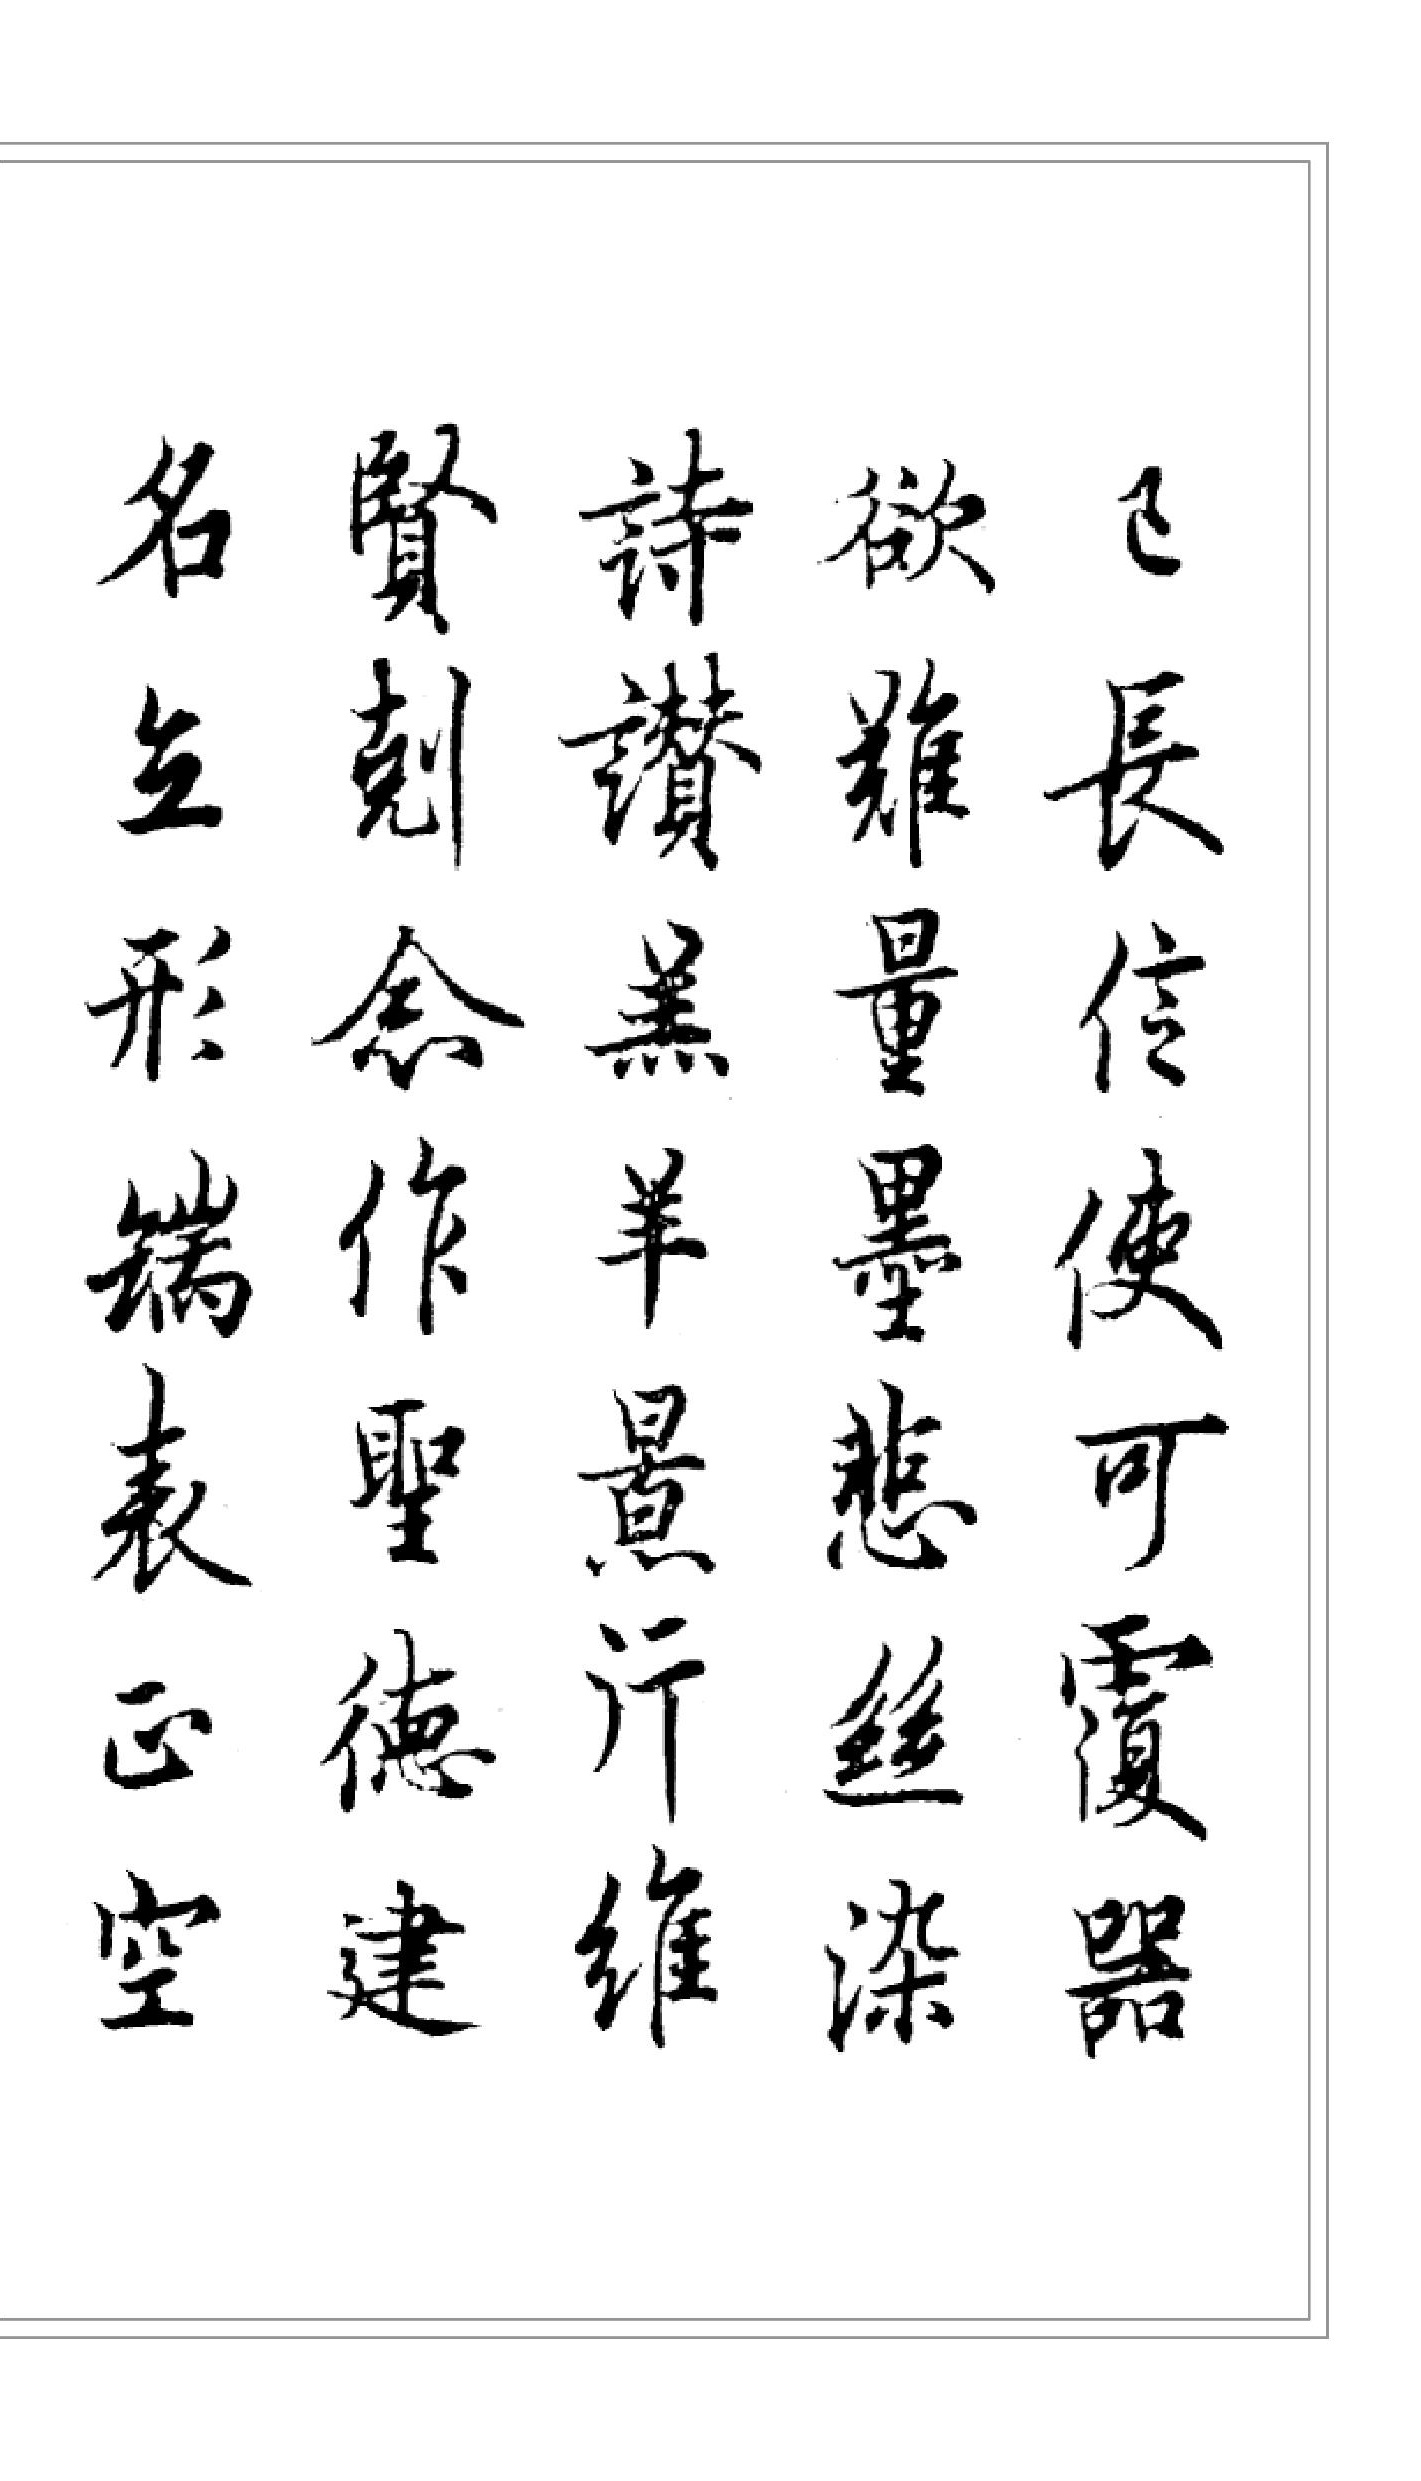 己長信使可覆器
欲難量墨悲絲染
詩讚羔羊景行維
賢剋念作聖德建
名立形端表正空